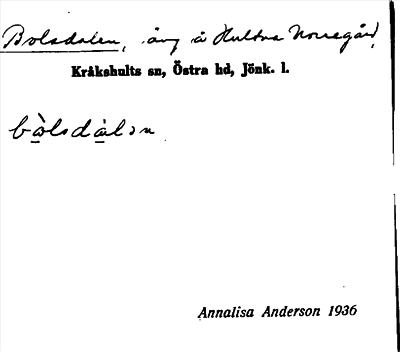 Bolsdalen, äng å Hultna Norregård,
Kråkshults sn, Östra hd, Jönk. l.
bòlsdàlən
Annalisa Anderson 1936